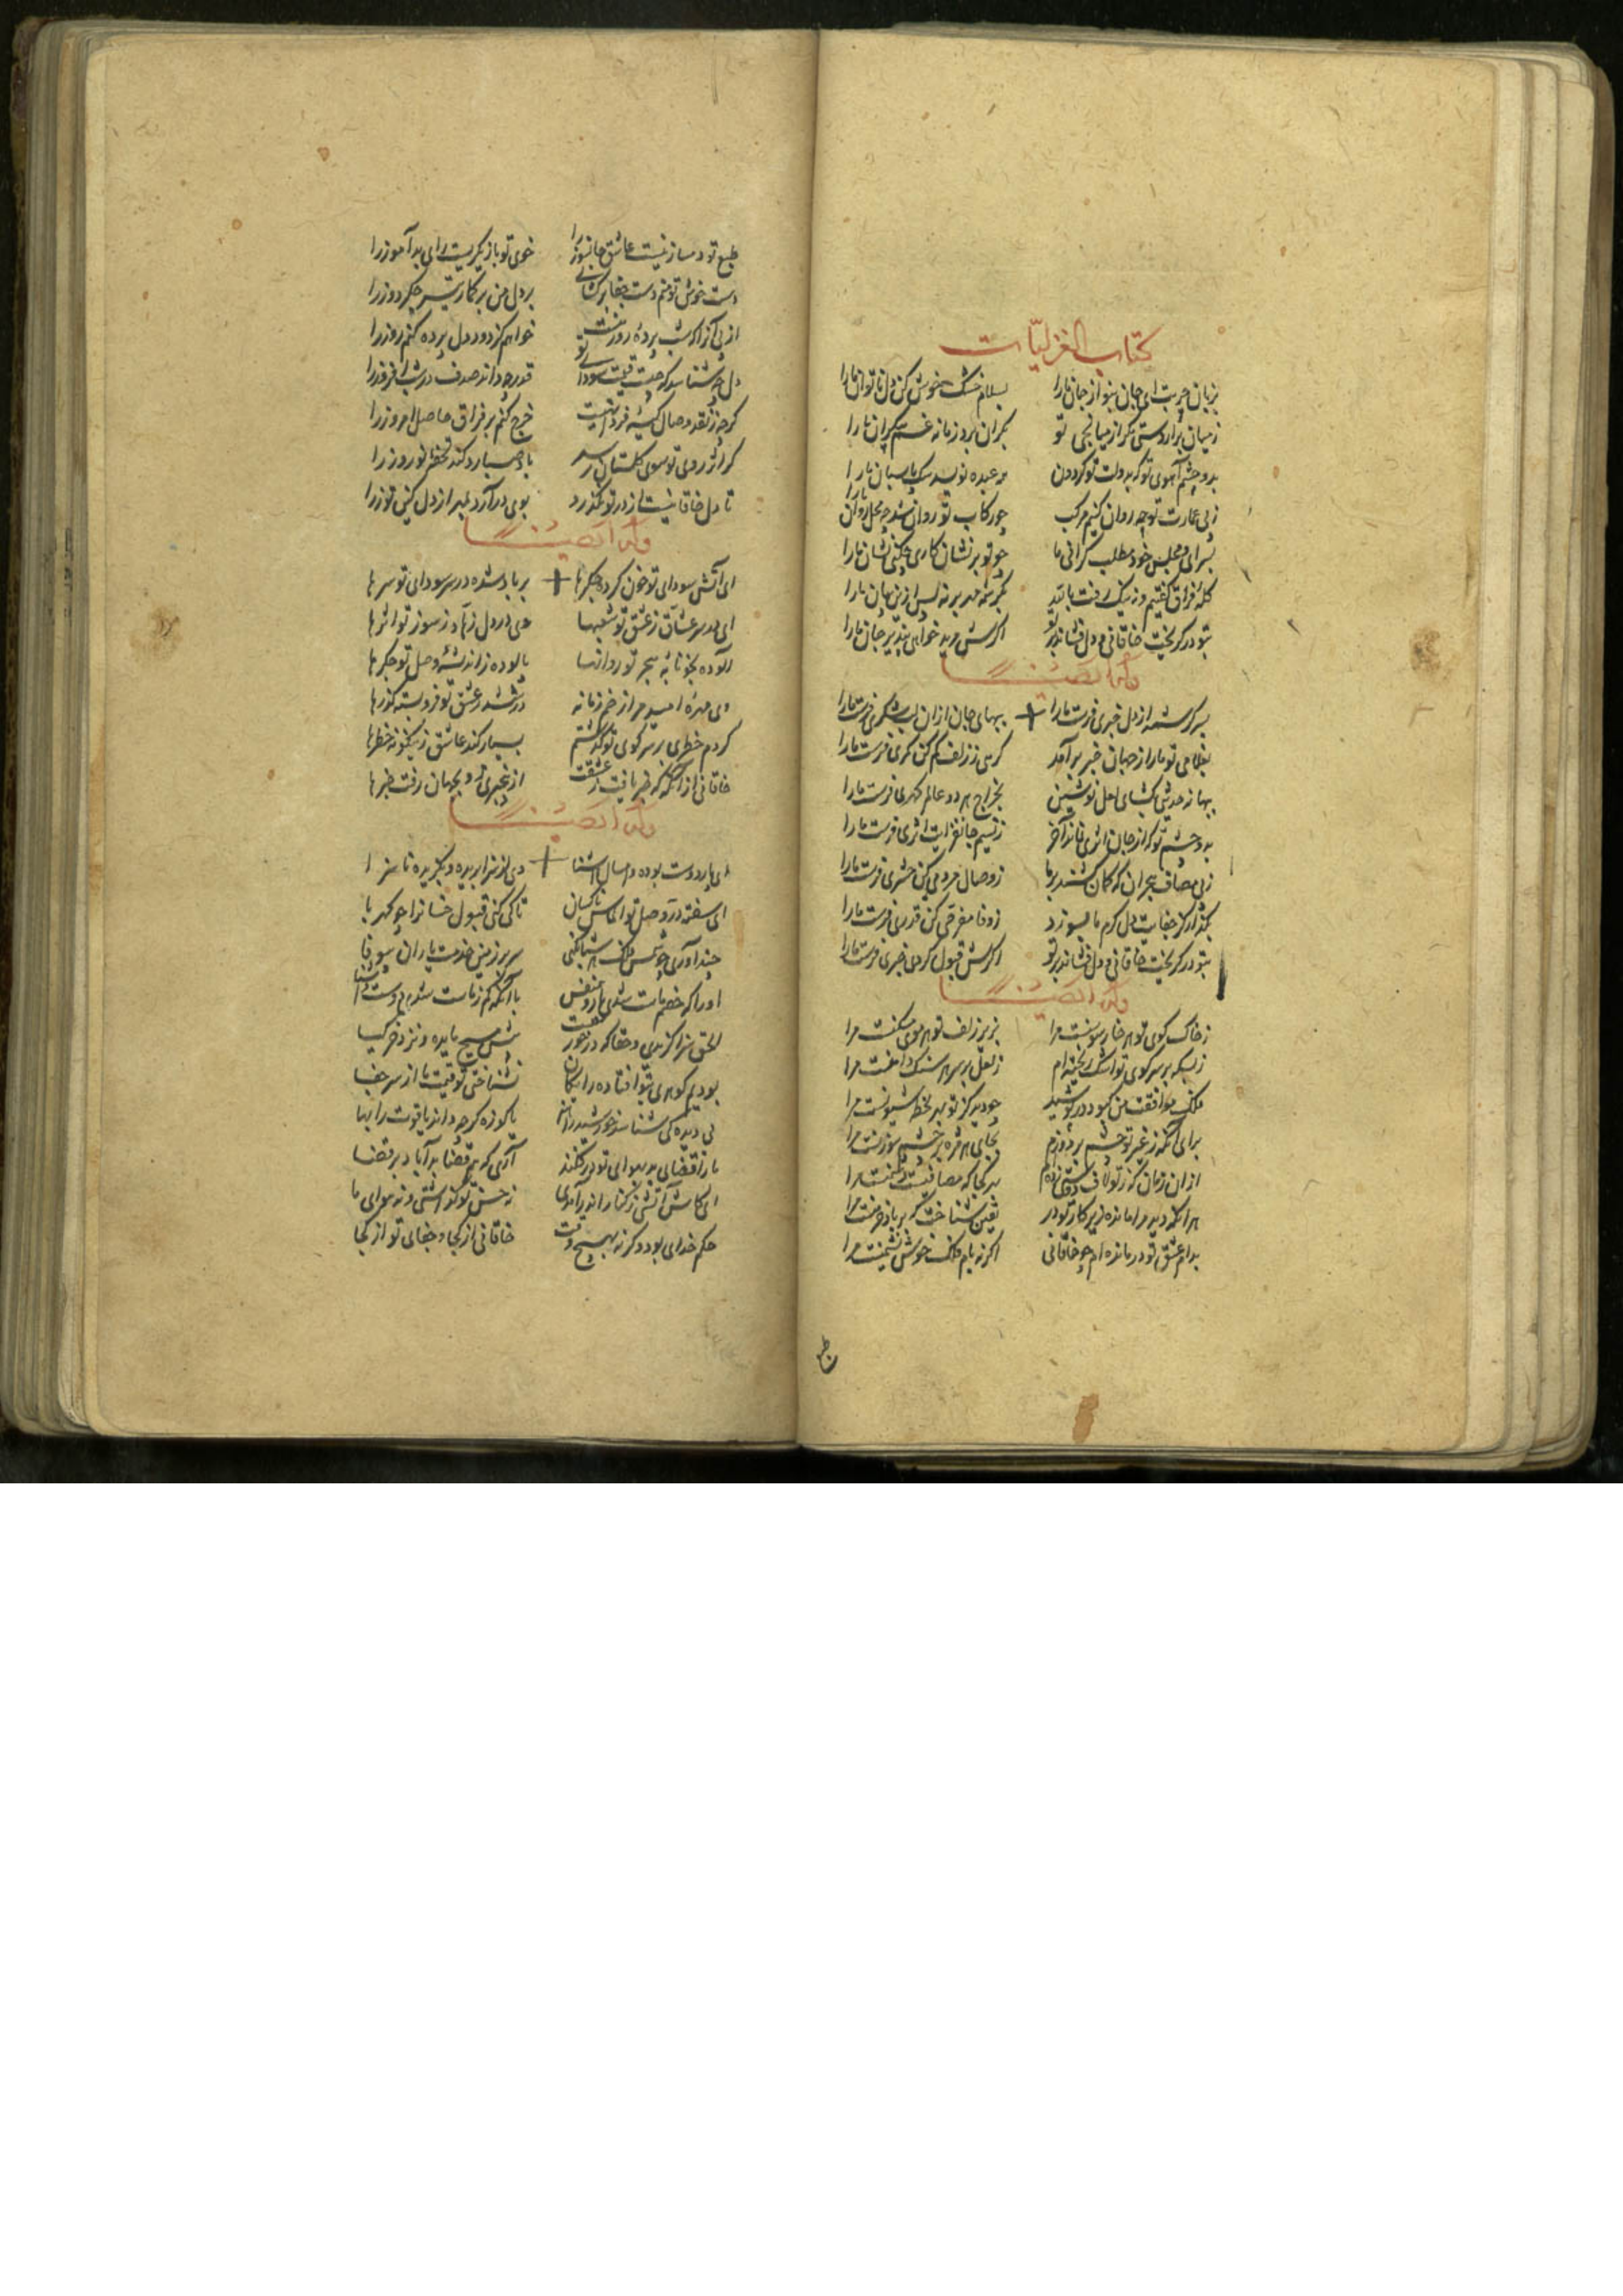 کتاب الغزلیّات
بزبان چربت ای جان بنواز جان ما را بسلام خشک خوش کن دل ناتوان ما را
زمیان برآر دستی مکر از میانجی تو بکران برد زمانه غم بیکران ما را
بدو چشم آهوی تو که بدولت تو کردون همه عبده نویسد سک پاسبان ما را
ز پی عمارت تو چه روان کنیم مرکب چو رکاب تو روان شد چه محل روان ما را
بسرای و مجلس خود مطلب کرانی ما چو تو بر نشان کاری چکنی نشان ما را
کله فراق کفتیم و نه نیک رفت با تو بکرشمه مهر بر نه پس ازین زبان ما را
بتو در کریخت خاقانی و دل فشاند بر تو اکرش مرید خواهی بپذیر جان ما را
وله ایضا
بسر کرشمه از دل خبری فرست ما را ببهای جان از آن لب شکری فرست ما را
بغلامی تو ما را از جهان خبر برآمد کرهی ز زلف کم کن کمری فرست ما را
ببهانه حدیثی بکشای لعل نوشین بخراج هر دو عالم کهری فرست ما را
بدو چشم تو که از جان اثری نماند آخر ز نسیم جانفزایت اثری فرست ما را
ز پی مصاف هجران که کمان کشند بر ما ز وصال مردمی کن حشری فرست ما را
بکذار کز جفایت دل کرم ما بسوزد ز وفا مفرحی کن قدری فرست ما را
بتو در کریخت خاقانی و دل فشاند بر تو اکرش قبول کردی خبری فرست ما را
وله ایضا
ز خاک کوی تو هر خار سوسنست مرا بزیر زلف تو هر موی مسکنست مرا
زبسکه بر سر کوی تو اشک ریخته‌ام ز لعل بر سر هر سنک دامنست مرا
فلک موافقت من کبود در پوشید چو دید کز تو بهر لحظه شیونست مرا
برای آنکه ز غیر تو چشم بردوزم بجای هر مژه بر چشم سوزنست مرا
از آن زمان که ز تو لاف دوستی زده‌ام بهر کجا که مصافیست دشمنست مرا
هر آنکه دید مرا مانده زیر کار تو در یقین شناخت که بر باد خرمنست مرا
بدام عشق تو درمانده‌ام چو خاقانی اکر نه بام فلک خوش نشیمنست مرا
طبع
طبع تو دمساز نیست عاشق جانسوز را خوی تو بازیکریست رای بدآموز را
دست خوش تو منم دست جفا برکشای بر دل من برکمار تیر جکردوز را
از پی آنرا که شب پرده راز منست خواهم کز دود دل پرده کنم روز را
دل چه شناسد که چیست قیمت سودای تو قدر چه داند صدف در شب‌افروز را
کر چه ز نقد وصال کیسه فردا نیست خرج کنم بر فراق حاصل امروز را
کر اثر روی تو سوی کلستان رسد باد صبا رد کند تحفه نوروز را
تا دل خاقانیست از در تو نکذرد بوی در آرد مهر از دل کین توز را
وله ایضا
ای آتش سودای تو خون کرده جکرها بر باد شده در سر سودای تو سرها
ای در سر عشاق ز عشق تو شغبها وی در دل زهاد ز سوز تو اثرها
آلوده بخونابه هجر تو روانها پالوده ز اندیشه وصل تو جکرها
وی مهره امید مرا زخم زمانه در ششدر عشق تو فروبسته کذرها
کردم خطری بر سر کوی تو کذشتم بسیار کند عاشق زینکونه خطرها
خاقانی از آنکه که خبر یافت ز عشقت از بی‌خبری او بجهان رفت خبرها
وله ایضا
ای پار دوست بوده و امسال آشنا وی از سزا بریده و بکزیده ناسزا
ای سفته در وصل تو الماس ناکسان تا کی کنی قبول خسانرا چو کهربا
چند آوری چو شمس فلک هر شبانکهی سر بر زمین خدمت یاران بیوفا
او را که خصم ماست شدی یار و همنفس با آنکه کم ز ماست شدی دوست و آشنا
الحق سزا کزیدی و حقا که در خور است پیش مسیح مایده و نزد خر کیا
بودیم کوهری بتو افتاده رایکان نشناختی تو قیمت ما از سر جفا
بی دیده کی شناسد خورشید را هنر یا کوزه کر چه داند یاقوت را بها
ما را قضای بد بهوای تو در فکند آری که هم قضا بد آباد بر قضا
ای کاش آتشی ز کنار اندر آمدی نه حسن تو کذاشتی و نه هوای ما
حکم خدای بود و کرنه بهیچ وقت خاقانی از کجا و جفای تو از کجا